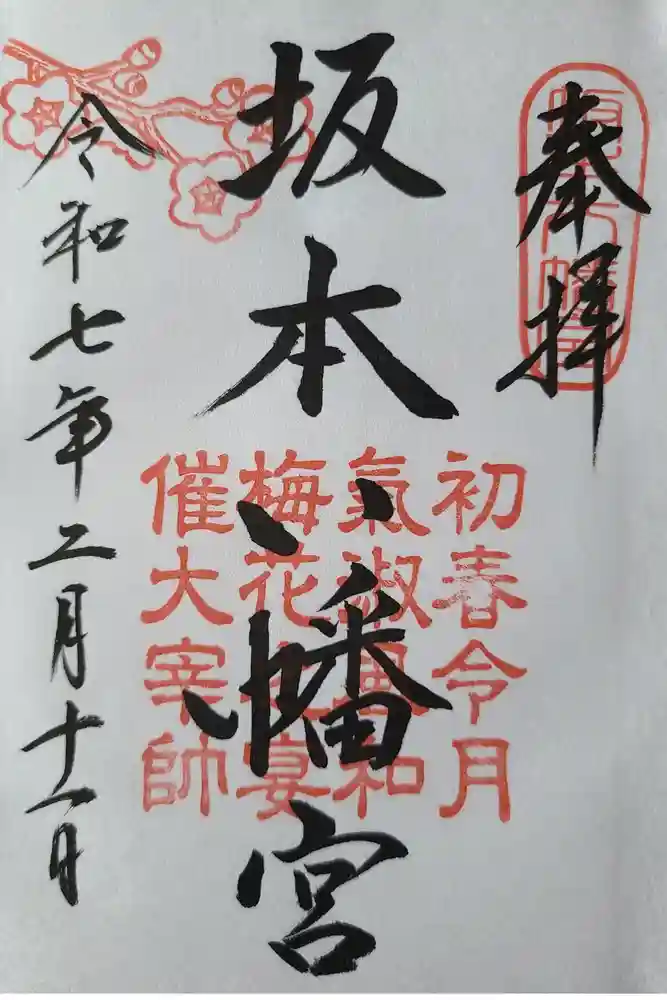 奉拝
坂本八幡宮
初春令月
氣淑風和
梅花之宴
催大宰帥
令和七年二月十一日